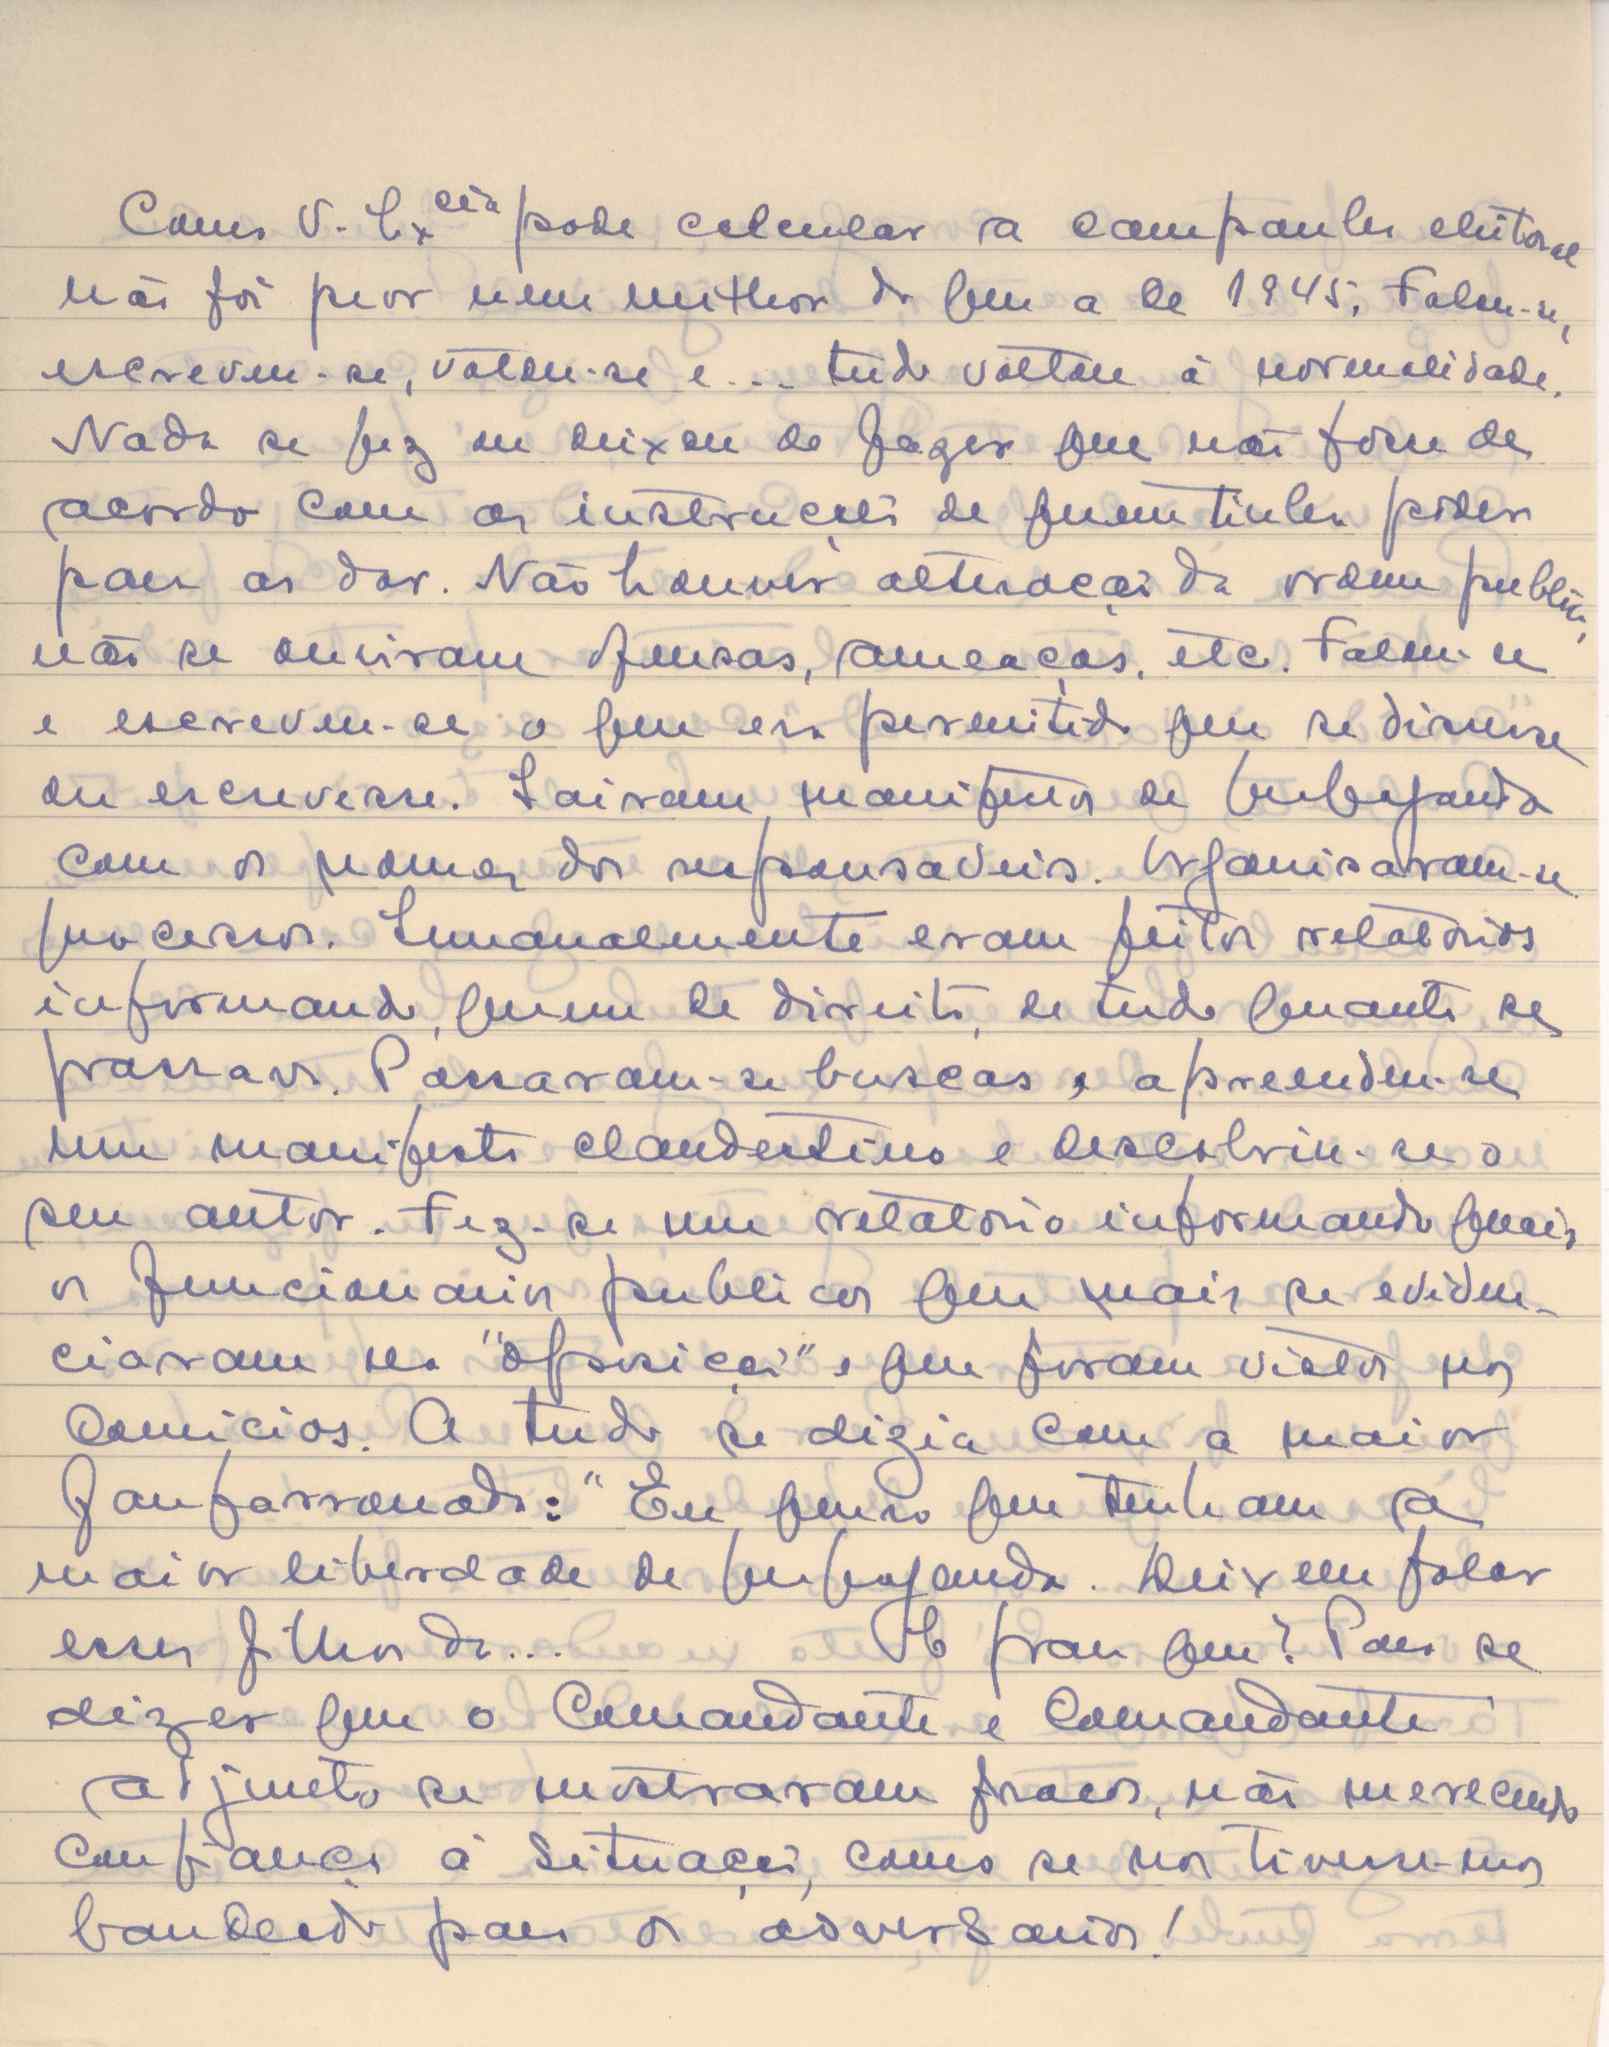 Como V. Ex.cia pode calcular a campanha eleitoral
não foi peor nem milhor do que a de 1945. Falou-se,
escreveu-se, votou-se e... tudo voltou à normalidade.
Nada se fez ou deixou de fazer que não fosse de
acordo com as instruções de quem tinha poder
para as dar. Não houve alteração da ordem publica,
não se ouviram ofensas, ameaças, etc. Falou-se
e escreveu-se o que era permitido que se dissesse
ou escrevesse. Sairam manifestos de propaganda
com os nomes dos responsaveis. Organisaram-se
processos. Semanalmente eram feitos relatorios
informando, quem de direito, de tudo quanto se
passava. Passaram-se buscas, apreendeu-se
um manifesto clandestino e descobriu-se o
seu autor. Fez-se um relatorio informando quais
os funcionarios publicos que mais se eviden-
ciaram na "oposição" e que foram vistos nos
comicios. A tudo se dizia com a maior
fanfarronada: "Eu quero que tenham a
maior liberdade de propaganda. Deixem falar
esses filhos da...
E para quê? Para se
dizer que o Comandante e Comandante
adjunto se mostraram fracos, não merecendo
confiança à Situação, como se nos tivesse-mos
bandeado para os adversarios!